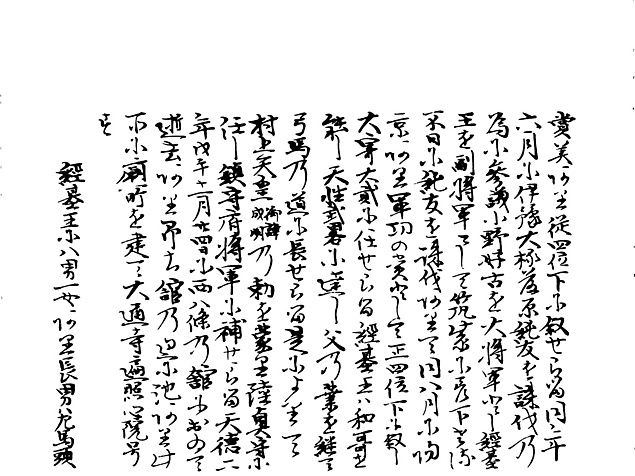 賞美ありて從四位下に叙せらる同二年
六月に伊豫大椽藤原純友を誅伐乃
為に參議小野好古を大將軍とし經基
王を副將軍として筑紫に下
不日に純友を誅伐ありて同八月に
京あり軍功の賞として正四位下に叙し
大宰大貳に任せらる經基王ハ和哥を
能し天性武畧に達し父乃業を經て
弓馬乃道に長せらる是によりて
村上天皇御諱成明乃勅を蒙里陸奥守に
任し鎮守府將軍に補せらる天徳二
年戊午十一月廿四日に西八條乃舘において
逝去あり舘乃池あり
下に廟を建て大通寺遍照心院号
す
經基王に八男一女あり長男左馬頭